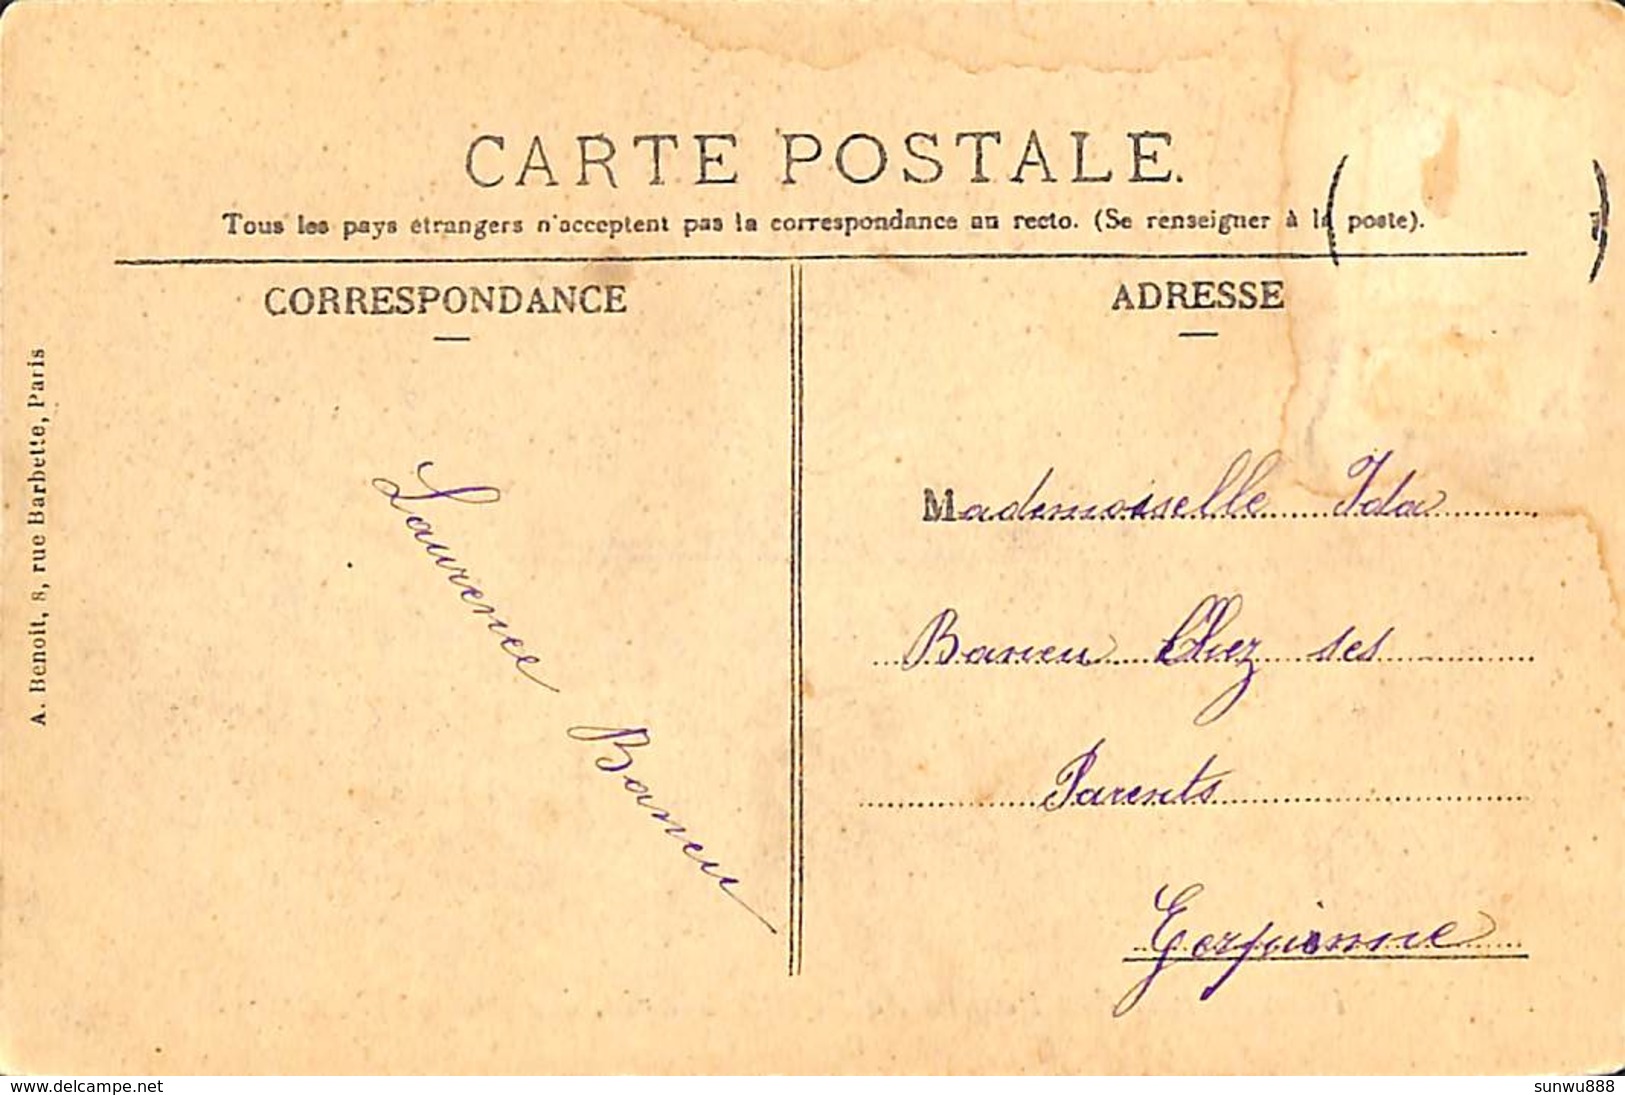 CARTE POSTALE.
Tous les pays étrangers n'acceptent pas la correspondance au recto. (Se renseigner à la poste).
CORRESPONDANCE
ADRESSE
A. Benoit, 8, rue Barbette, Paris
Laurence Baneu
Mademoiselle Ida
Baneu Chez ses
Parents
Gerpinne
www.delcampe.net
sunwu888